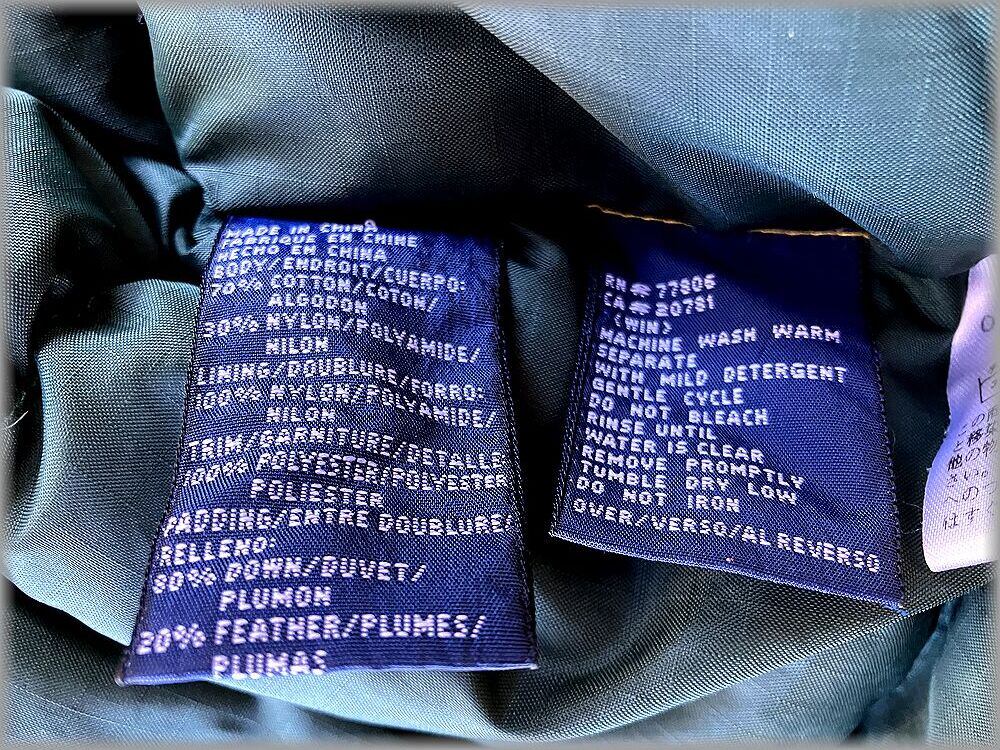 MADE IN CHINA
FABRIQUE EN CHINE
HECHO EN CHINA
BODY/ENDROIT/CUERPO:
70% COTTON/COTON/
ALGODON
30% NYLON/POLYAMIDE/
NILON
LINING/DOUBLURE/FORRO:
100% NYLON/POLYAMIDE/
NILON
TRIM/GARNITURE/DETALLE
100% POLYESTER/POLYESTER
POLIESTER
PADDING/ENTRE DOUBLURE/
RELLENO:
80% DOWN/DUVET/
PLUMON
20% FEATHER/PLUMES/
PLUMAS
RN# 77806
CA# 20781
(WIN)
MACHINE WASH WARM
SEPARATE
WITH MILD DETERGENT
GENTLE CYCLE
DO NOT BLEACH
RINSE UNTIL
WATER IS CLEAR
REMOVE PROMPTLY
TUMBLE DRY LOW
DO NOT IRON
OVER/VERSO/AL REVERSO